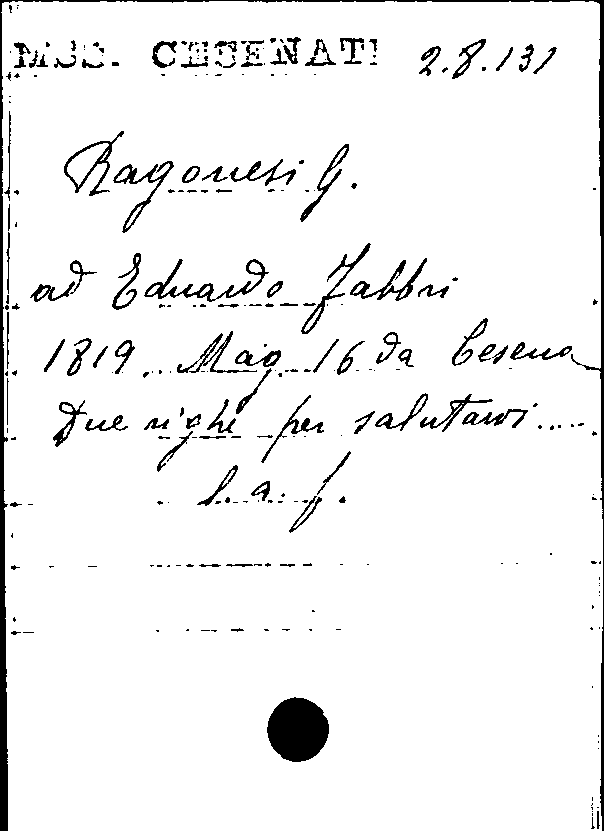 MSS. CESENATI 2.8.131
Ragonesi G.
ad Eduardo Fabbri
1819. Mag. 16 da Cesena
Due righe per salutarvi....
l. a. f.